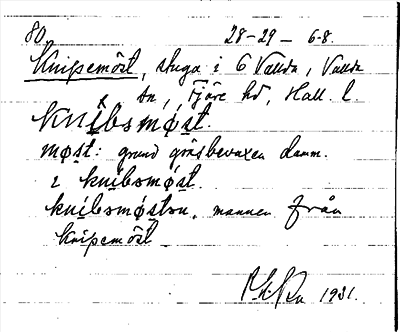 80 28-29- 6-8.
Knipemöst, stuga i G Vallda, Vallda
sn, Fjäre hd, Hall. l.
kni̇bsmøst.
møst: grund gräsbevuxen damm.
i knibsmøst.
knibsmøstn, mannen från
Knipemöst
1931.